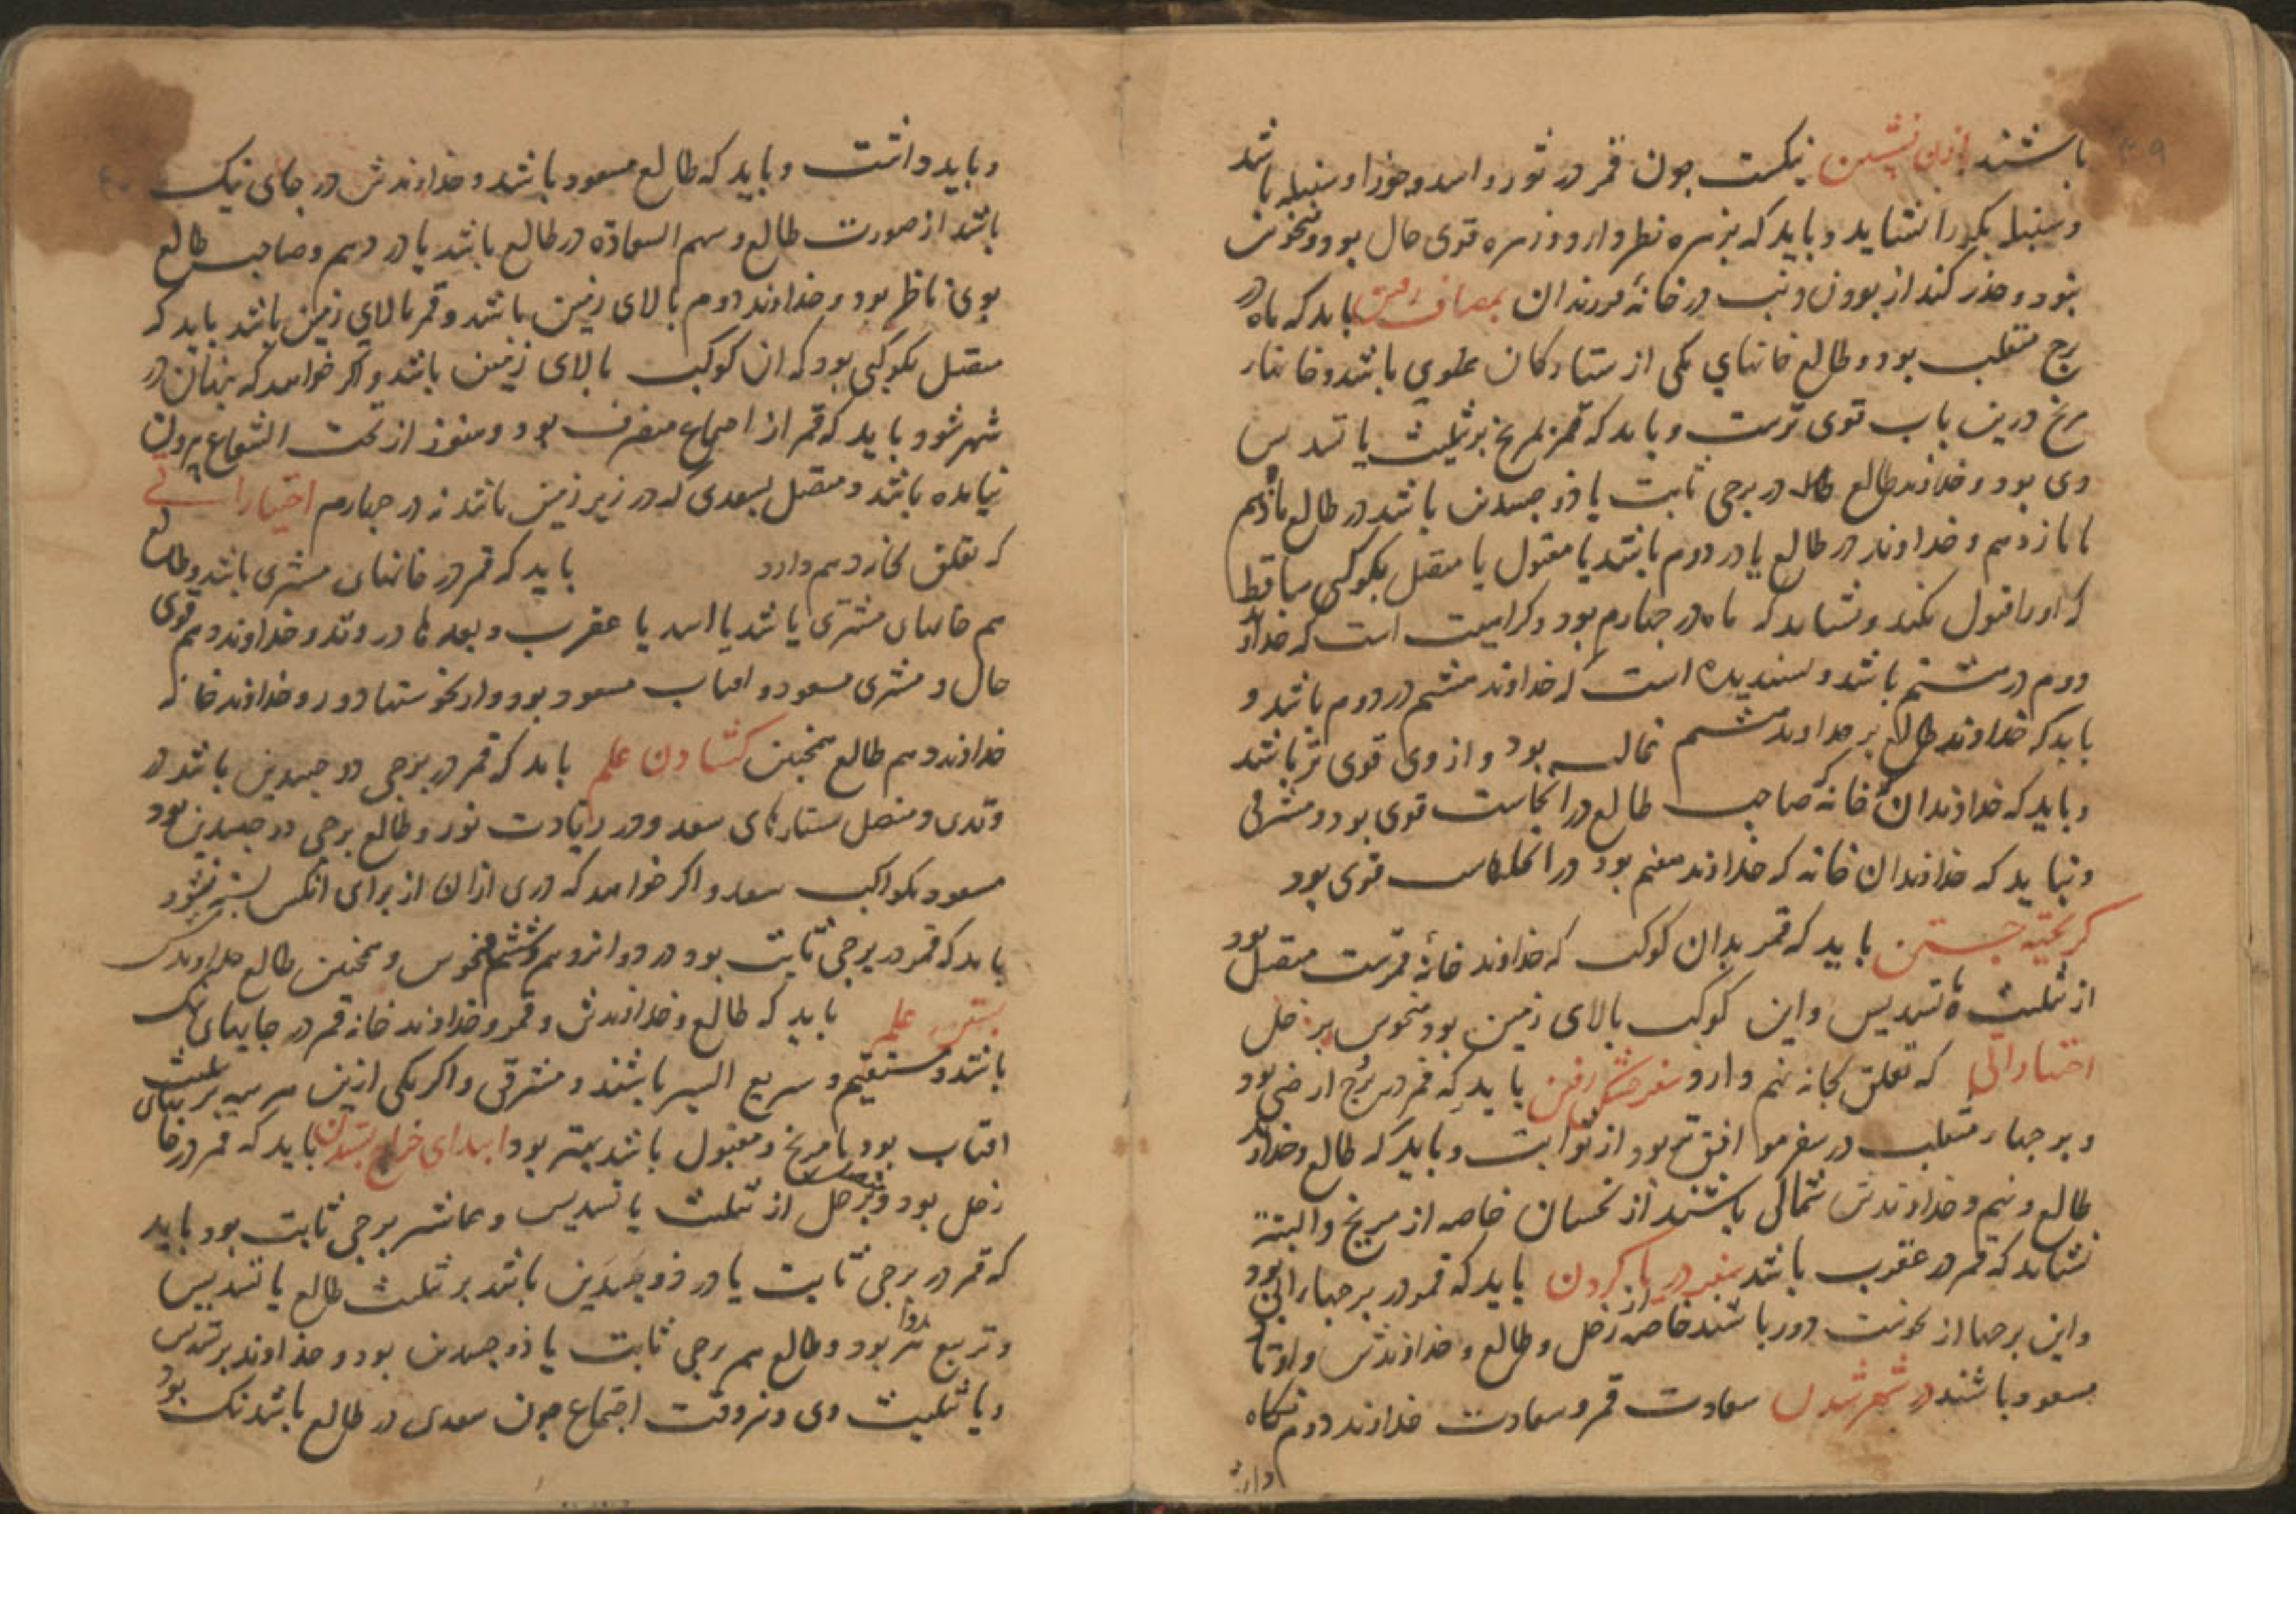 باشند با زن نشستن نیکست چون قمر در ثور و اسد و جوزا و سنبله باشد
و سنبله بکر را نشاید و باید که بزهره نظر دارد و زهره قوی حال بود و منحوس
نبود و حذر کند از بودن ذنب در خانهٔ فرزندان بمصاف رفتن باید که ماه در
برج منقلب بود و طالع خانهای یکی از ستارکان علوی باشد و خانهاء
مریخ درین باب قوی ترست و باید که قمر بمریخ بر تثلیث یا تسدیس
وی بود و خداوند طالع در برجی ثابت یا ذو جسدین باشد در طالع یا دهم
یا یازدهم و خداوند در طالع یا در دوم باشد یا مقبول یا متصل بکوکبی ساقط
که او را قبول نکند و نشاید که ماه در چهارم بود و کراهیت است که خداوند
دوم در هشتم باشد و پسندیده است که خداوند هشتم در دوم باشد و
باید که خداوند طالع بر خداوند هشتم غالب بود و از وی قوی تر باشد
و باید که خداوند ان خانه که صاحب طالع در انجاست قوی بود و مشرقی
و نباید که خداوند ان خانه که خداوند هفتم بود در انجاست قوی بود
کریخته جستن باید که قمر بدان کوکب که خداوند خانهٔ قمرست متصل بود
از تثلیث یا تسدیس و این کوکب بالای زمین بود منحوس بزحل
اختیاراتی که تعلق بخانه نهم دارد سفر خشکی رفتن باید که قمر در برج ارضی بود
و برجهاء منقلب در سفر موافق تر بود از ثوابت و باید که طالع و خداوند
طالع و نهم و خداوندش خالی باشند از نحسان خاصه از مریخ و البته
نشاید که قمر در عقرب باشد سفر دریا کردن باید که قمر در برجهاء ابی بود
و این برجها از نحوست دور باشند خاصه از زحل و طالع و خداوندش و اوتاد
مسعود باشند در شهر شدن سعادت قمر و سعادت خداوند دوم نکاه
دار
و باید داشت و باید که طالع مسعود باشد و خداوندش در جای نیک
باشد از صورت طالع و سهم السعادة در طالع باشد یا در دهم و صاحب طالع
بوی ناظر بود و خداوند دوم بالای زمین باشد و قمر بالای زمین باشد باید که
متصل بکوکبی بود که ان کوکب بالای زمین باشد و اکر خواهد که پنهان در
شهر شود باید که قمر از اجتماع منصرف بود و هنوز از تحت الشعاع بیرون
نیامده باشد و متصل بسعدی که در زیر زمین باشد نه در چهارم اختیاراتی
که تعلق بخانه دهم دارد باید که قمر در خانهای مشتری باشد و طالع
هم خانهای مشتری باشد یا اسد یا عقرب و سعدها در وتد و خداوند دهم قوی
حال و مشتری مسعود و افتاب مسعود بود و از نحوستها دور و خداوند خانه
خداوند دهم طالع همچنین کشادن علم باید که قمر در برجی دو جسدین باشد در
وتدی و متصل ستارهای سعد و در زیادت نور و طالع برجی دو جسدین بود
مسعود بکواکب سعد و اکر خواهد که دری از ان از برای انکس بسته نشود
باید که قمر در برجی ثابت بود در دوازدهم و ششم منحوس و همچنین طالع
بستن علم باید که طالع و خداوندش و قمر و خداوند خانه قمر در جایهای نیک
باشد و مستقیم و سریع السیر باشند و مشرقی و اکر یکی ازین هر سه بر تثلیث
افتاب بود یا مریخ و مقبول باشد بهتر بود ابتدای خراج ستدن باید که قمر در خانهای
زحل بود و بزحل از تثلیث یا تسدیس و عاشر برجی ثابت بود باید
که قمر در برجی ثابت یا در ذو جسدین باشد بر تثلیث طالع یا تسدیس
و تربیع نیز روا بود و طالع هم برجی ثابت یا ذو جسدین بود و خداوند بر تسدیس
و یا تثلیث وی و نزد وقت اجتماع چون سعدی در طالع باشد نیک بود